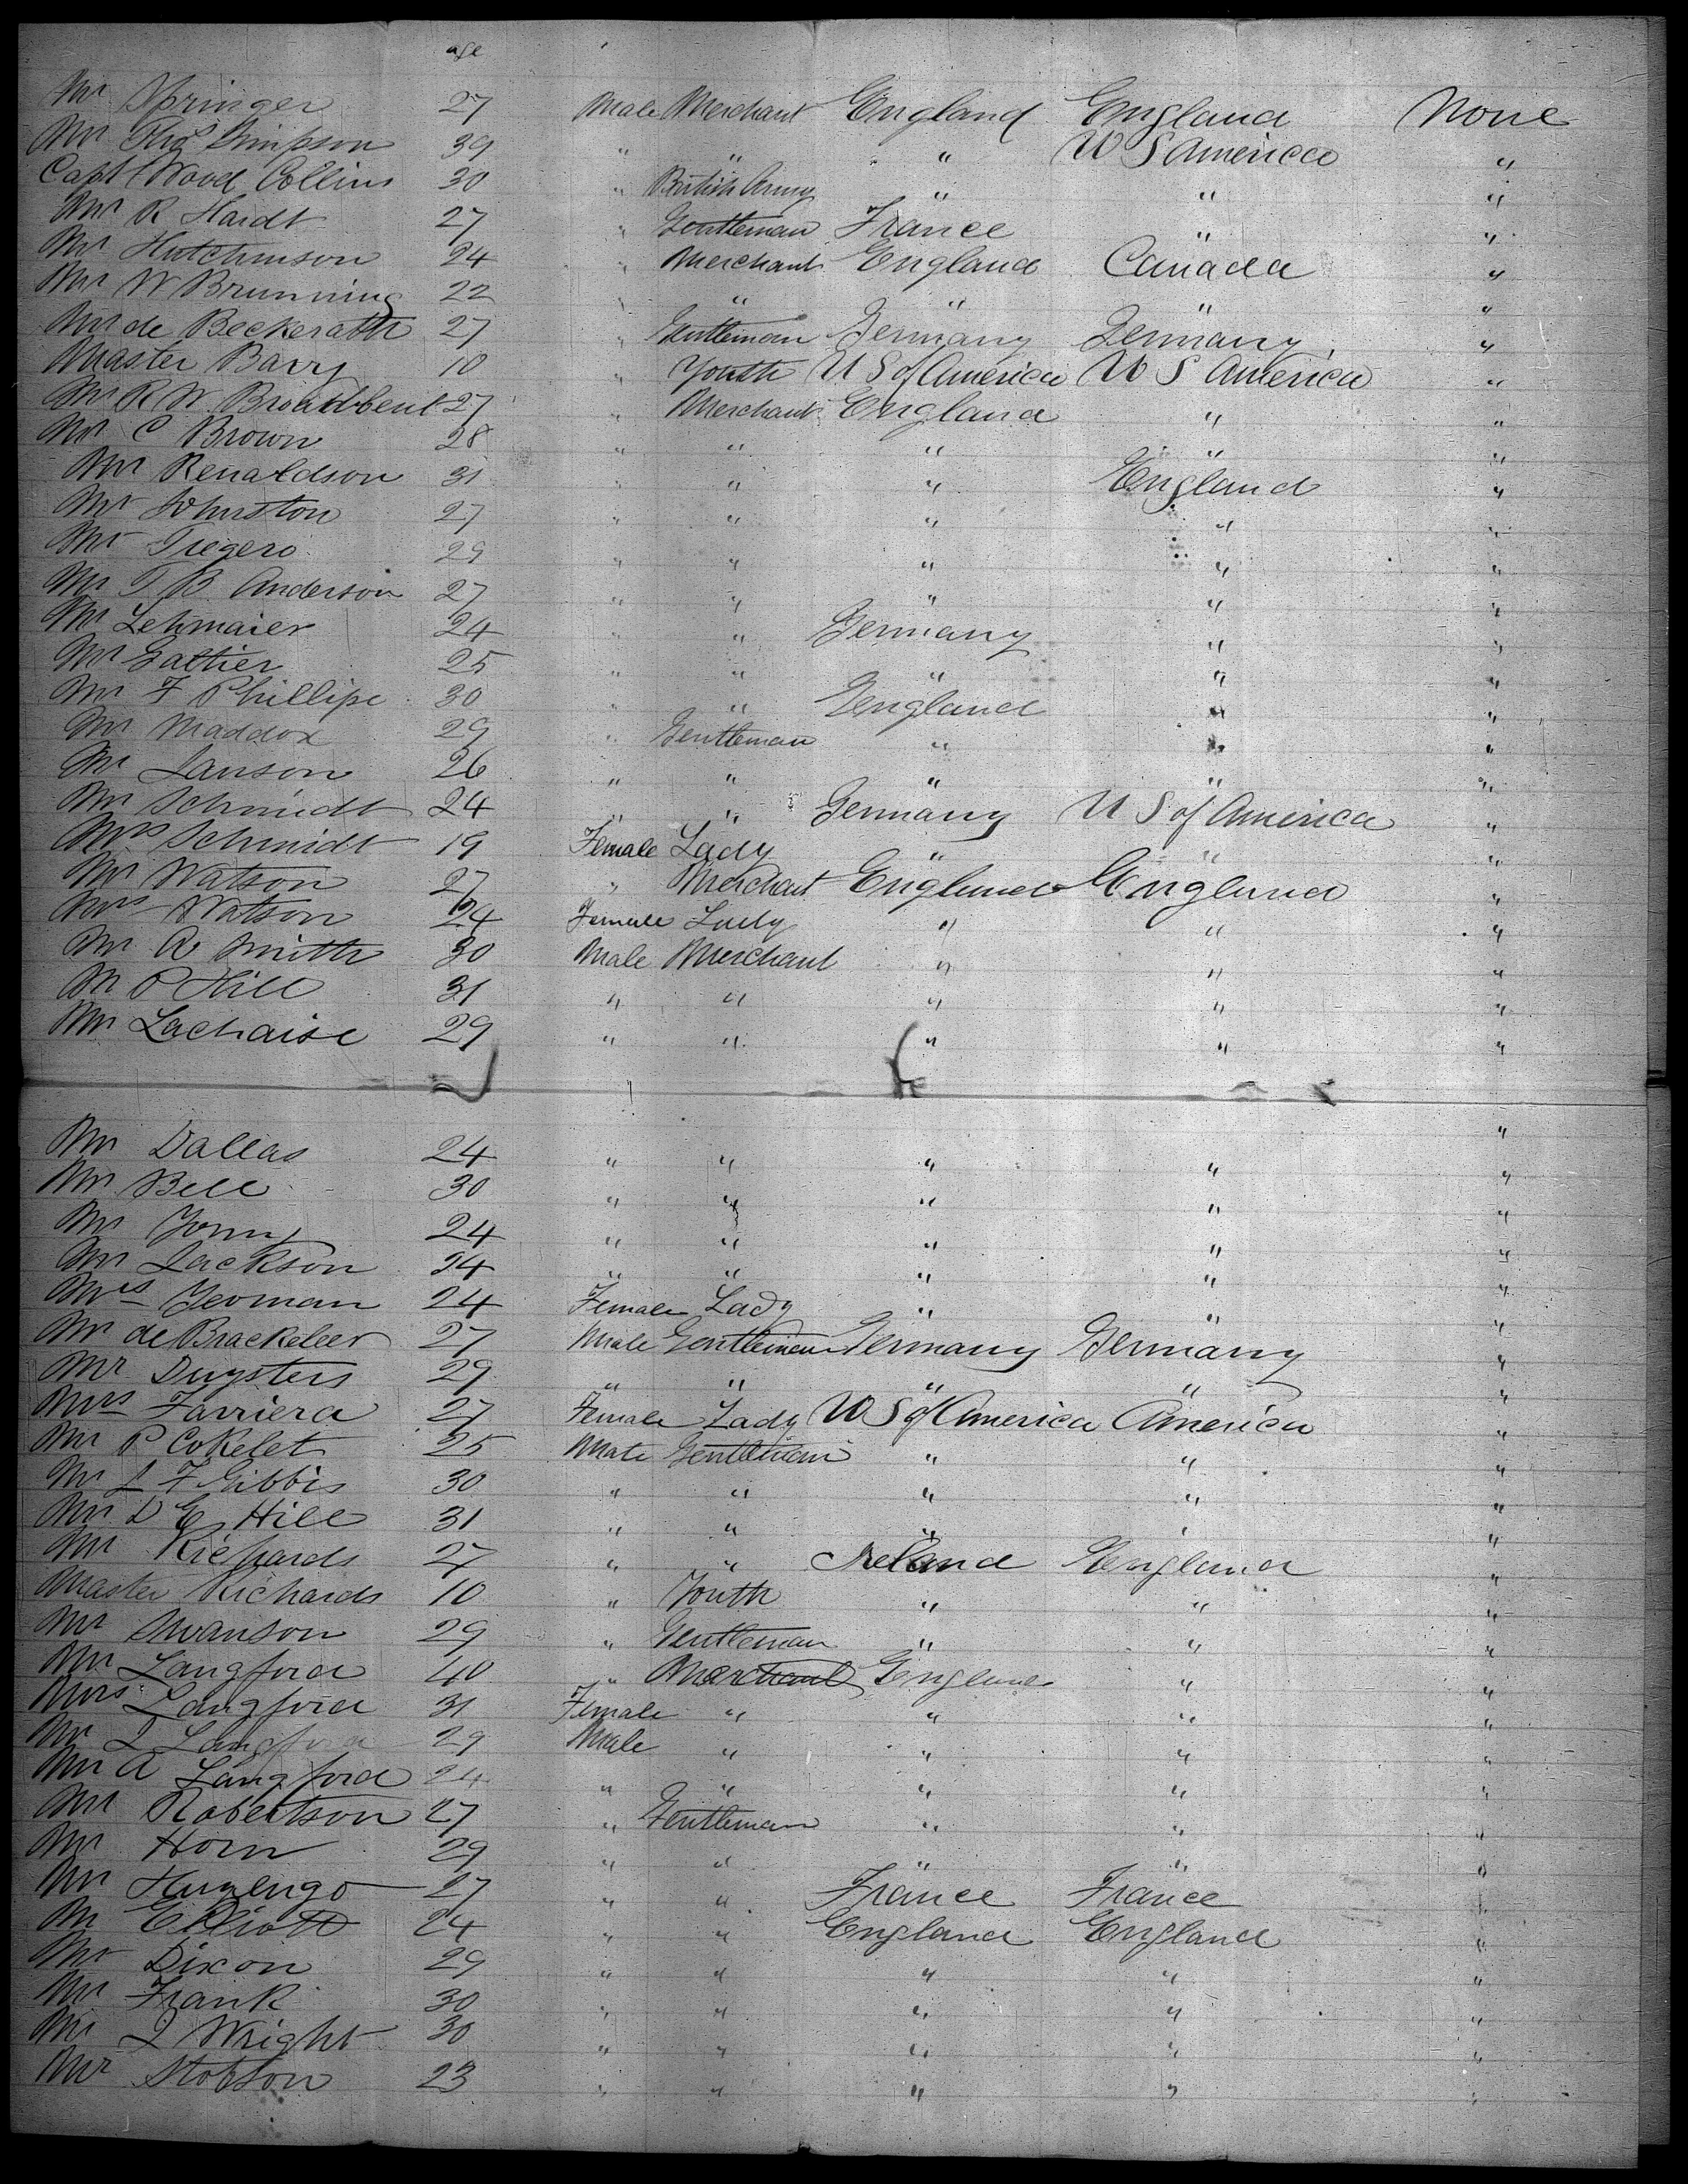 age
Mr Springer 27 Male Merchant England England None
Mr Thos Simpson 39 " " " U S America "
Capt Wood Collins 30 " British Army " " "
Mr R Hardt 27 " Gentleman France " "
Mr Hutchinson 24 " Merchant England Canada "
Mr W Brunning 22 " " " " "
Mr de Beckerath 27 " Gentleman Germany Germany "
Master Barry 10 " Youth U S of America U S America "
Mr R W Broadbent 27 " Merchant England " "
Mr C Brown 28 " " " " "
Mr Renaldson 31 " " " England "
Mr Johnston 27 " " " " "
Mr Tregero 29 " " " " "
Mr T B Anderson 27 " " " " "
Mr Lehmaier 24 " " Germany " "
Mr Galtier 25 " " " " "
Mr F Phillips 30 " " England " "
Mr Maddox 29 " Gentleman " " "
Mr Janson 26 " " " " "
Mr Schmidt 24 " " Germany U S of America "
Mrs Schmidt 19 Female Lady " " "
Mr Watson 27 " Merchant England England "
Mrs Watson 24 Female Lady " " "
Mr A Smith 30 Male Merchant " " "
Mr P Hill 31 " " " " "
Mr Lachaise 29 " " " " "
"
Mr Dallas 24 " " " " "
Mr Bell 30 " " " " "
Mr 24 " " " " "
Mr Jackson 24 " " " " "
Mrs Yeoman 24 Female Lady " " "
Mr de Brackeleer 27 Male Gentleman Germany Germany "
Mr Duysters 29 " " " " "
Mrs Farriera 27 Female Lady U S of America America "
Mr P Cokelet 25 Male Gentleman " " "
Mr L F Gibbis 30 " " " " "
Mr D E Hill 31 " " " " "
Mr Richards 27 " " Ireland England "
Master Richards 10 " Youth " " "
Mr Swanson 29 " Gentleman " " "
Mr Langford 40 " Merchant England " "
Mrs Langford 31 Female " " " "
Mr J Langford 29 Male " " " "
Mr A Langford 24 " " " " "
Mr Robertson 27 " Gentleman " " "
Mr Horn 29 " " " " "
Mr Huyengo 27 " " France France "
Mr Elliott 24 " " England England "
Mr Dixon 29 " " " " "
Mr Frank 30 " " " " "
Mr J Wright 30 " " " " "
Mr Stobson 23 " " " " "